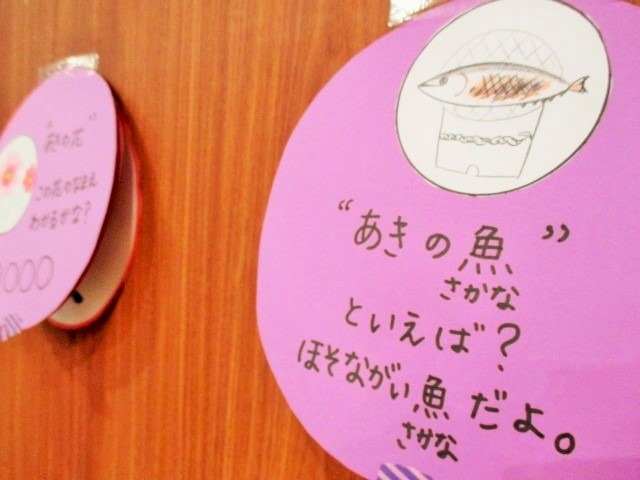 “あきの花”
この花のなまえ
わかるかな？
○○○
“あきの魚”
さかな
といえば？
ほそながい魚だよ。
さかな